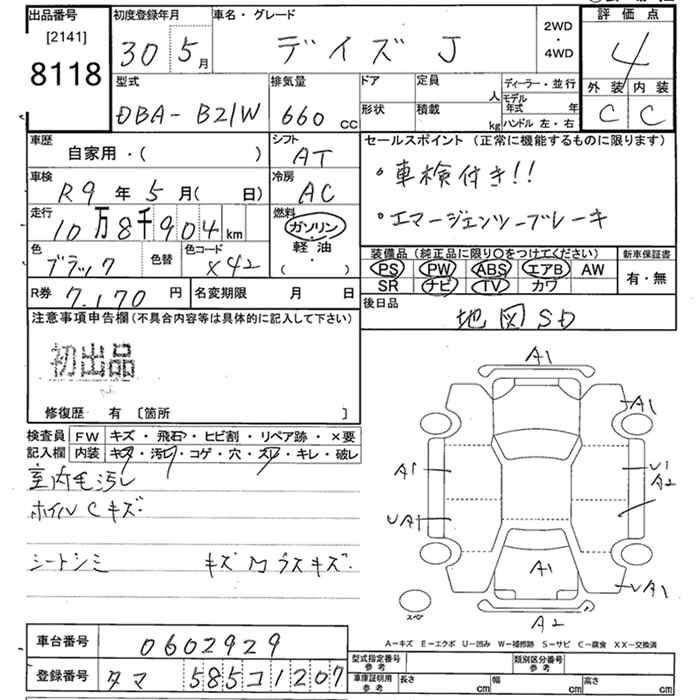 出品番号 初度登録年月 車名・グレード 2WD・4WD 評価点
[2141]
8118 30 5月 デイズ J 4
型式 排気量 ドア 定員 人 ディーラー・並行 外装 内装
DBA-B21W 660cc 形状 積載 kg モデル年式 年 ハンドル 左・右 C C
車歴 自家用・( ) シフト AT
車検 R9年5月( 日) 冷房 AC
走行 10万8千904km 燃料 ガソリン・軽油・( )
色 ブラック 色替 色コード X42
R券 7,170円 名変期限 月 日
セールスポイント (正常に機能するものに限ります)
・車検付き!!
・エマージェンシーブレーキ
装備品 (純正品に限り○をつけてください) 新車保証書
PS PW ABS エアB AW 有・無
SR ナビ TV カワ
後日品 地図SD
注意事項申告欄(不具合内容等は具体的に記入して下さい)
初出品
修復歴 有 [箇所 ]
検査員 FW キズ・飛石・ヒビ割・リペア跡・×要
記入欄 内装 キズ・汚レ・コゲ・穴・スレ・キレ・破レ
室内毛汚レ
ホイルCキズ
シートシミ キズMラスキズ.
A1
A1
A1
U1
A2
UA1
A1
UA1
スペア
A2
A-キズ E-エクボ U-凹み W-補修跡 S-サビ C-腐食 XX-交換済
車台番号 0602929
登録番号 タマ 585コ1207
型式指定番号 参考 類別区分番号 参考
車庫証明用 参考 長さ cm 幅 cm 高さ cm